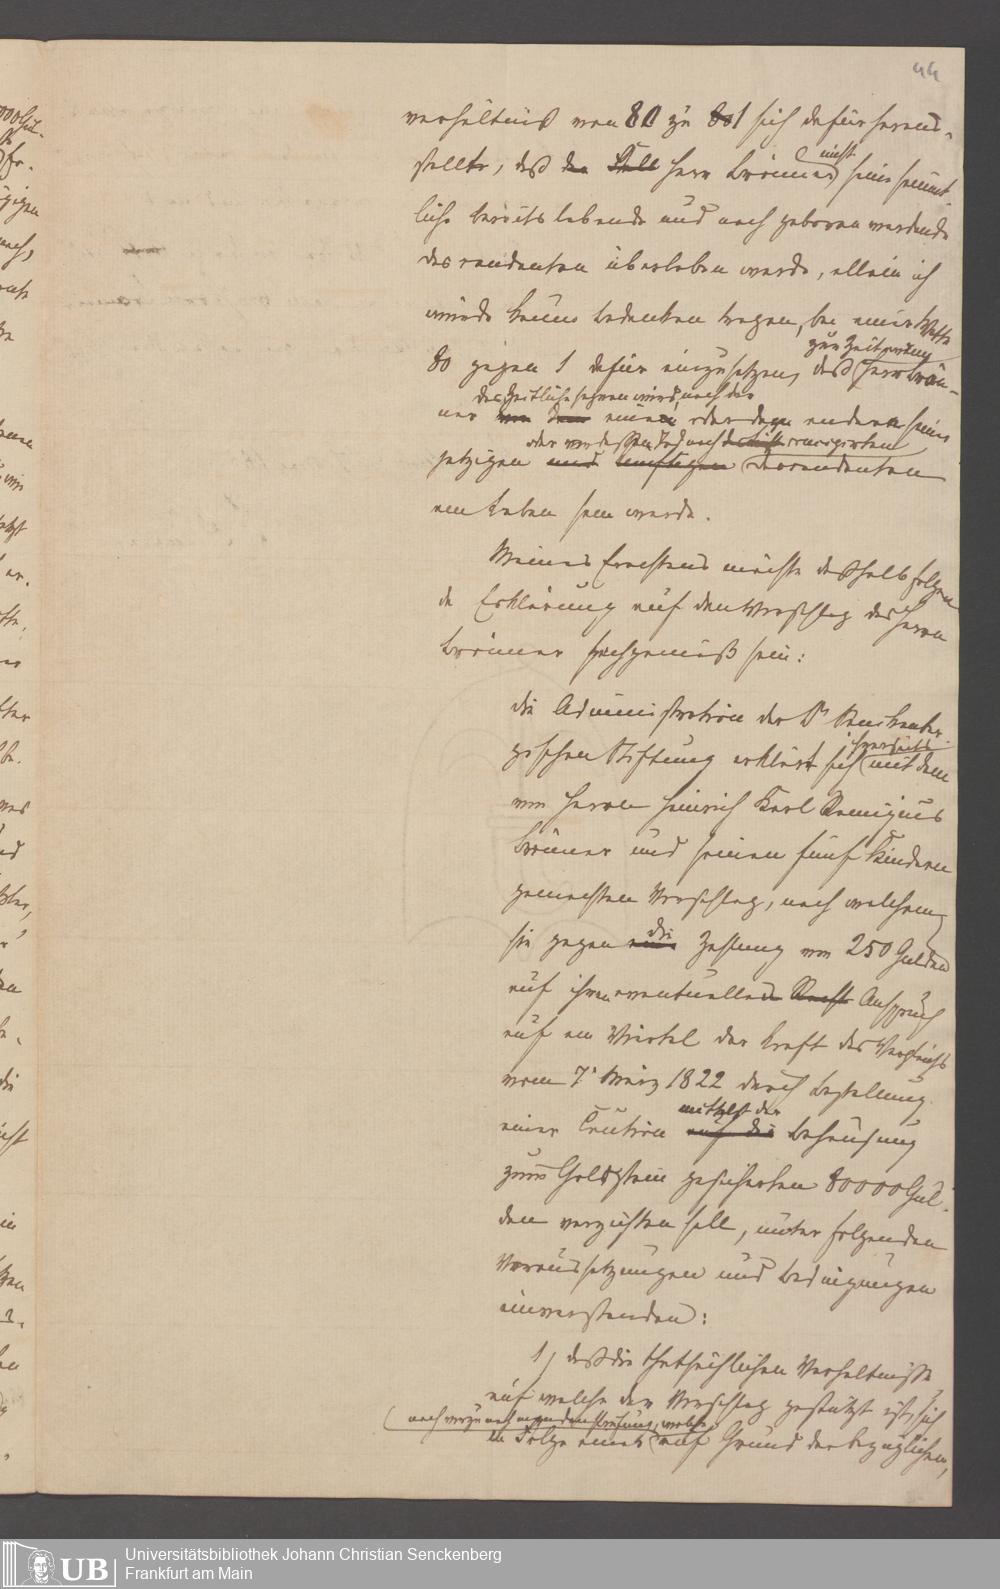 44
verhältniß von 80 zu 801 sich dafür heraus-
stellte, daß der Fall Herr Brönner nicht seine sämmt-
liche bereits lebende und noch geboren werdende
Descendenten überleben werde, allein ich
würde kaum Bedenken tragen, bei einer Wette
80 gegen 1 dafür einzusetzen, daß Herr Brön-
zur Zeit
das Zeitliche segnen wird, noch der
ner von dem eine oder der andere seiner
oder vor dessen Tod noch
jetzigen und künftigen Descendenten
am Leben sein werde.
Meines Erachtens möchte deßhalb folgen
de Erklärung auf den Vorschlag des Herrn
Brönner sachgemäß sein:
die Administration der Dr Senckenber-
gischen Stiftung erklärt sich ihrerseits mit dem
von Herrn Heinrich Karl Remigius
Brönner und seinen fünf Kindern
gemachten Vorschlag, nach welchem
sie gegen eine die Zahlung von 250 Gulden
auf ihren eventuellen Recht Anspruch
auf ein Viertel der kraft des Vergleichs
vom 7. März 1822 durch Bestellung
einer Caution auf die mittelst der Behausung
zum Goldstein gesicherten 80000 Gul-
den verzichten soll, unter folgenden
Voraussetzungen und Bedingungen
einverstanden:
1) daß die thatsächlichen Verhältnisse
auf welche der Vorschlag gestützt ist, sich
noch vorzunehmenden Prüfung, welche
in Folge einer auf Grund der bezüglichen,
Universitätsbibliothek Johann Christian Senckenberg
Frankfurt am Main
UB